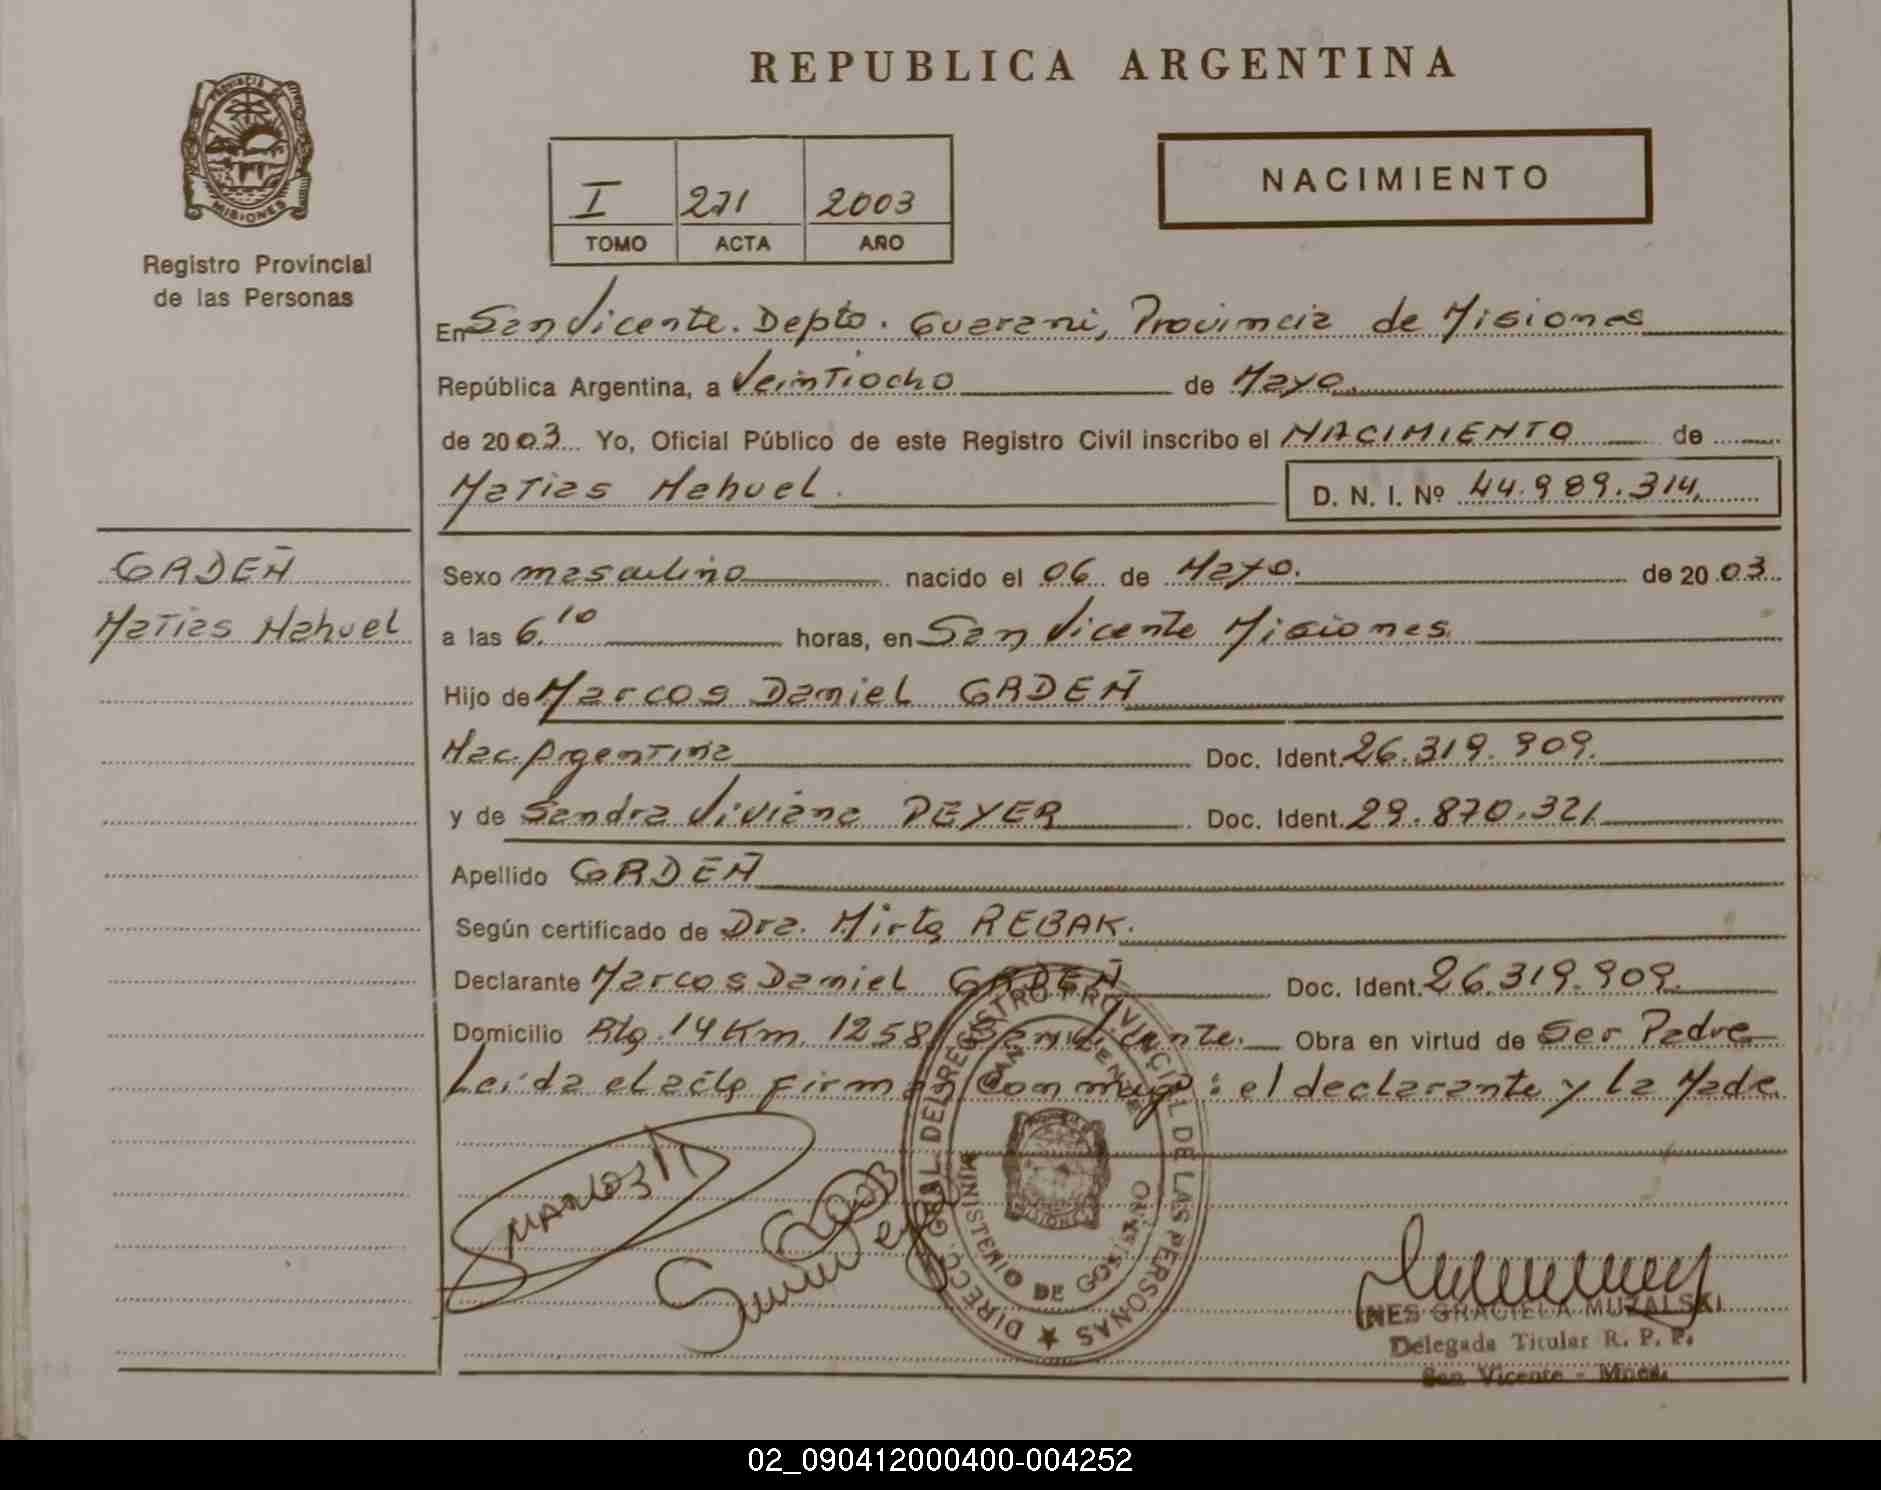 REPUBLICA ARGENTINA
PROVINCIA DE
MISIONES
Registro Provincial
de las Personas
I 271 2003
TOMO ACTA AÑO
NACIMIENTO
En San Vicente. Depto. Guarani, Provincia de Misiones
República Argentina, a Veintiocho de Mayo.
de 2003 Yo, Oficial Público de este Registro Civil inscribo el NACIMIENTO de
Matias Nahuel. D. N. I. Nº 44.989.314
GRDEÑ
Matias Nahuel
Sexo masculino nacido el 06 de Mayo. de 2003
a las 6.10 horas, en San Vicente Misiones
Hijo de Marcos Daniel GRDEÑ
Nac. Argentina Doc. Ident. 26.319.909.
y de Sandra Viviana DEYER Doc. Ident. 29.870.321
Apellido GRDEÑ
Según certificado de Dra. Mirta REBAK.
Declarante Marcos Daniel GRDEÑ Doc. Ident. 26.319.909.
Domicilio Rta. 14 Km. 1258 San Vicente. Obra en virtud de Ser Padre
Leída el acta firman conmigo: el declarante y la Madre
DIRECC. GRAL. DEL REGISTRO PROVINCIAL DE LAS PERSONAS
SAN VICENTE
MINISTERIO DE GOBIERNO
INES GRACIELA MUZALSKI
Delegada Titular R. P. P.
San Vicente - Mnes.
02_090412000400-004252